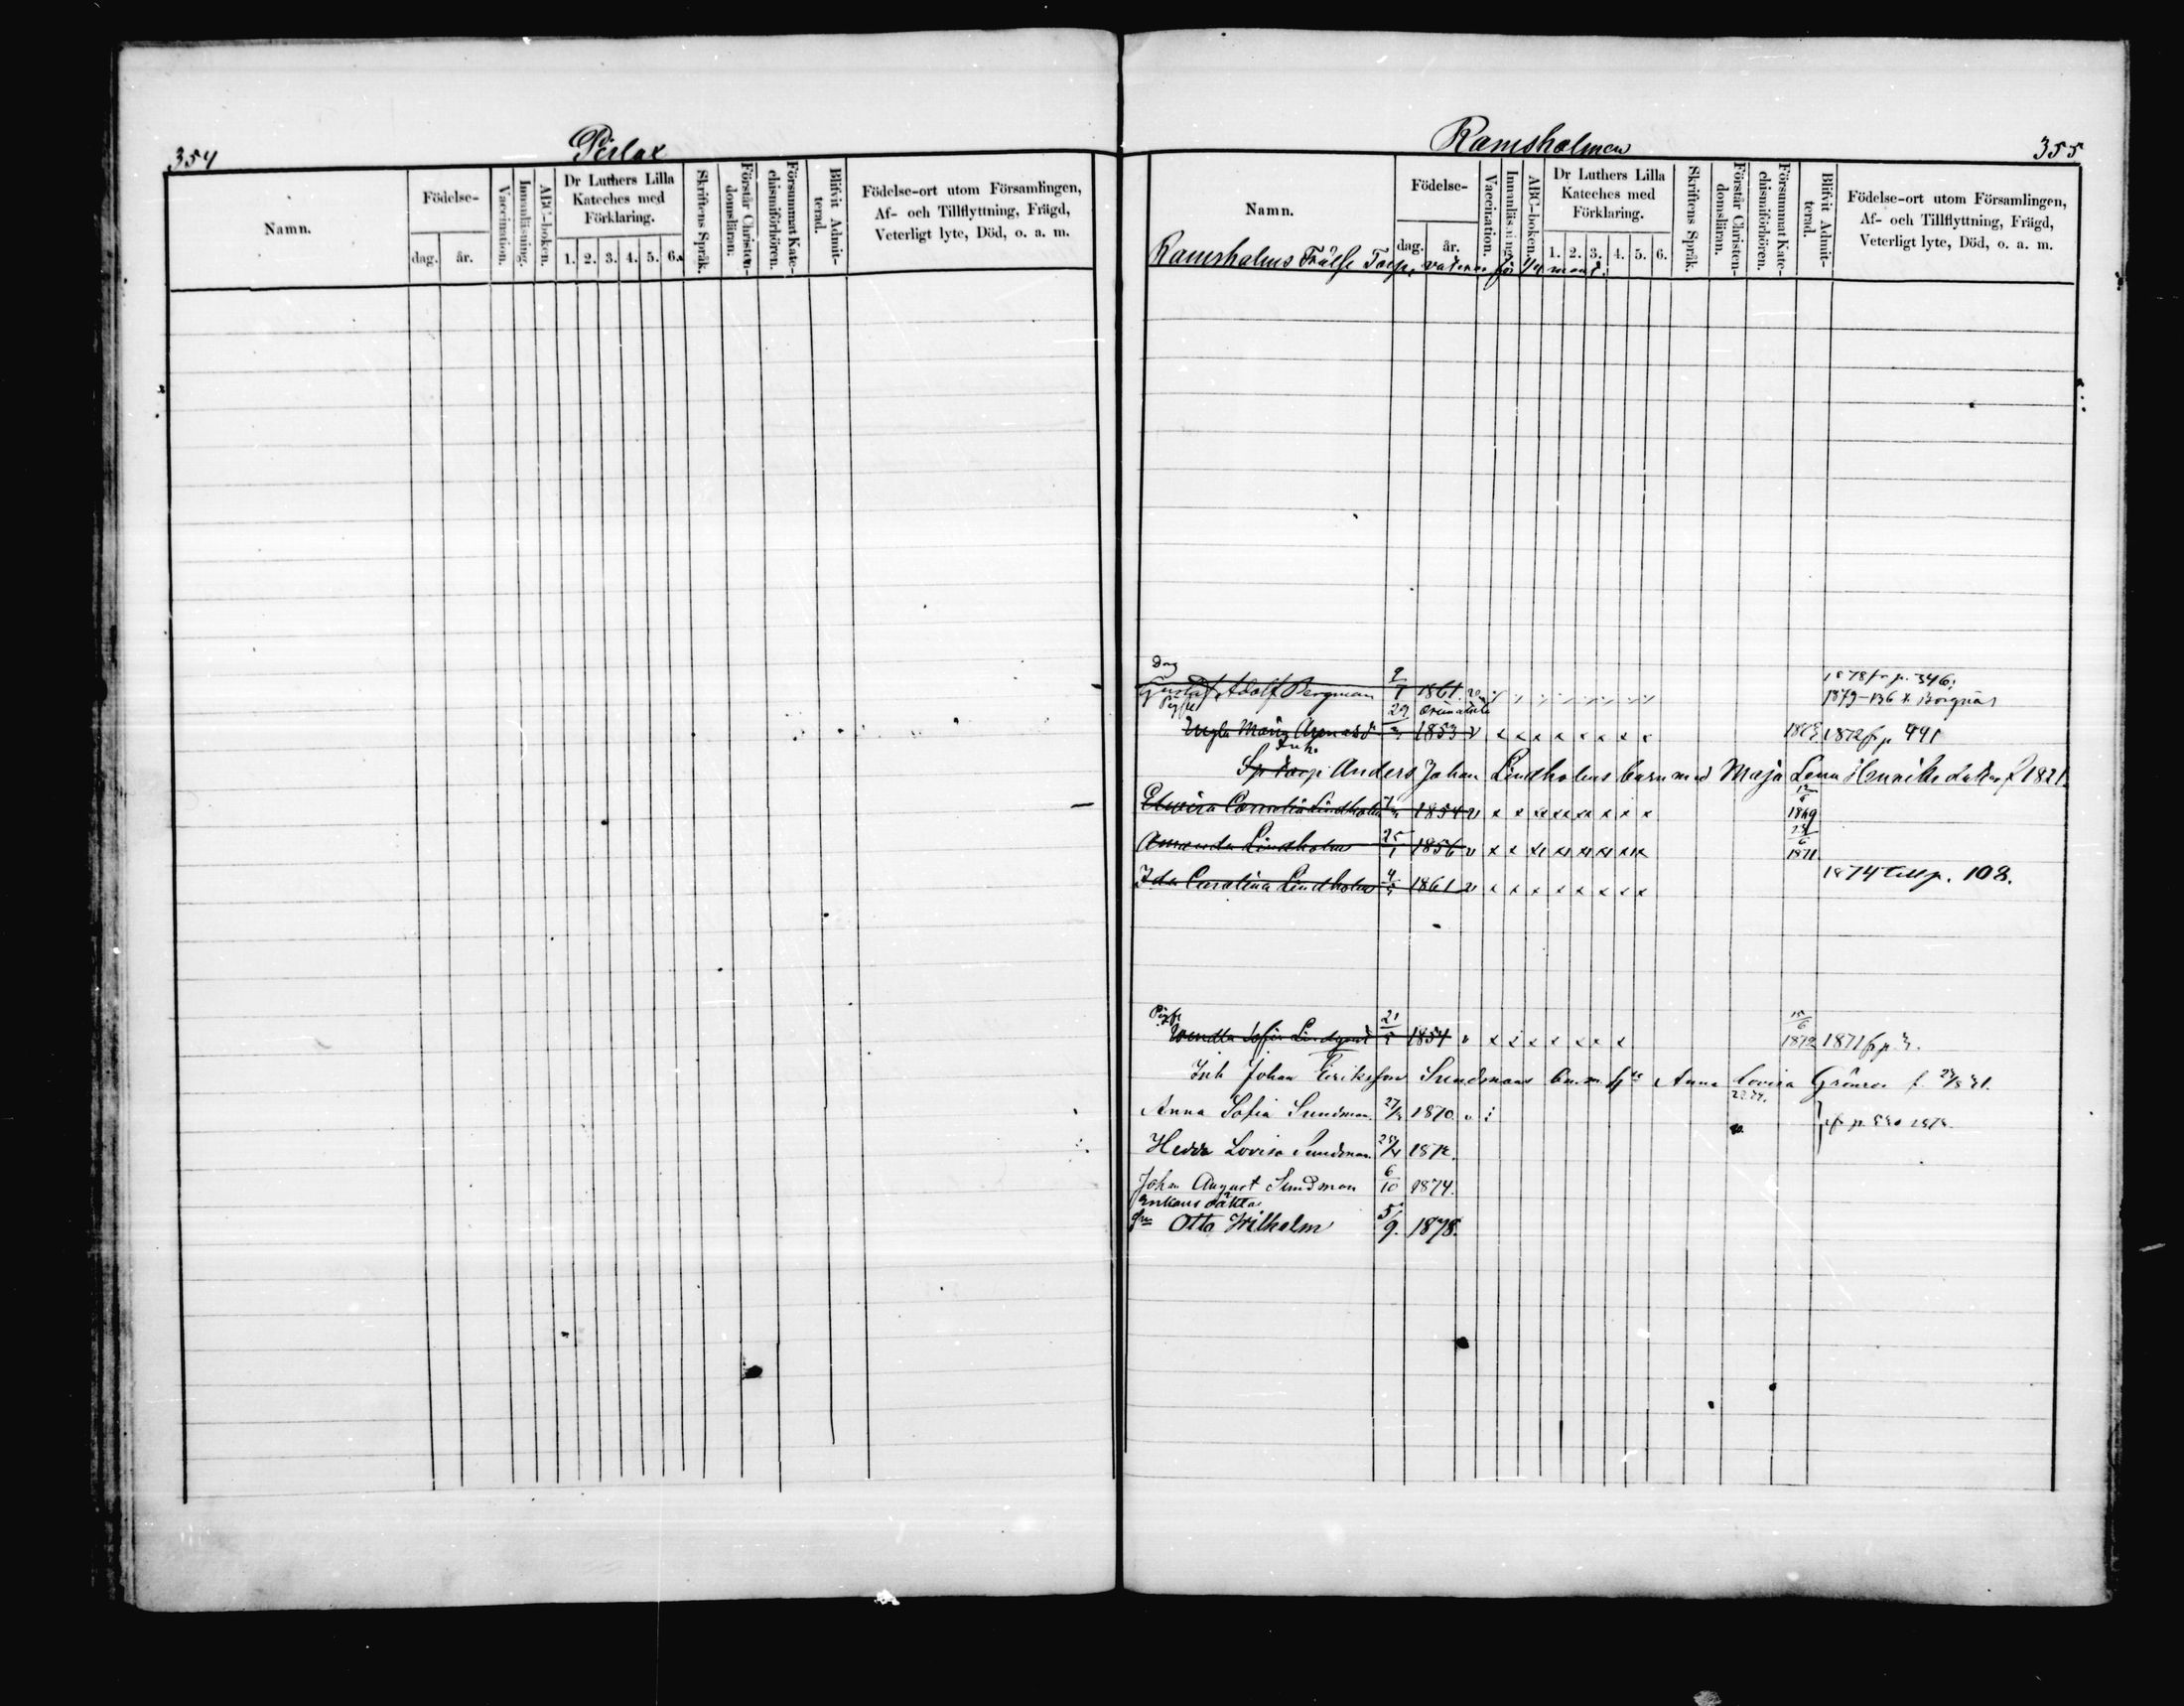 354
Perlax
Namn.
Födelse-
dag. år.
Vaccination.
Innanläsning.
ABC-boken.
Dr Luthers Lilla Kateches med Förklaring.
1. 2. 3. 4. 5. 6.
Skriftens Språk.
Förstår Christen-domsläran.
Försummat Kate-chismiförhören.
Blifvit Admit-terad.
Födelse-ort utom Församlingen,
Af- och Tillflyttning, Frägd,
Veterligt lyte, Död, o. a. m.
Ramsholmen
355
Namn.
Födelse-
dag. år.
Vaccination.
Innanläsning.
ABC-boken.
Dr Luthers Lilla Kateches med Förklaring.
1. 2. 3. 4. 5. 6.
Skriftens Språk.
Förstår Christen-domsläran.
Försummat Kate-chismiförhören.
Blifvit Admit-terad.
Födelse-ort utom Församlingen,
Af- och Tillflyttning, Frägd,
Veterligt lyte, Död, o. a. m.
Ramsholms Frälse Torp, för 1/4 mant.
Drg
Gustaf Adolf Bergman 9 1861 1878 fr p. 346.
1879 - 136 Borgnäs
Piga
Maria 29 1853 v x x x x x x x x 1872 fr p 441
Inh.
Sp torp Anders Johan Lindholms barn med Maja Lena Henriksdotter f 1821.
Elwira Cornelia Lindholm 1854 v x x x x x x x x 1869
Amanda Lindholm 25/1 1856 v x x x x x x x x 1871
Ida Carolina Lindholm 4 1861 v x x x x x x x x 1874 till p. 108.
Piga
Wendla Sofia Lindqvist 21 1854 v x x x x x x x 15/6 1872 1871 fr p
Inh Johan Eriksson Sundmans barn m Anna Lovisa Grönroos f.
Anna Sofia Sundman 27 1870 v
Hedda Lovisa Sundman 187
Johan August Sundman 6/10 1874.
Enkans dotter
Son Otto Wilhelm 5/9. 1878.